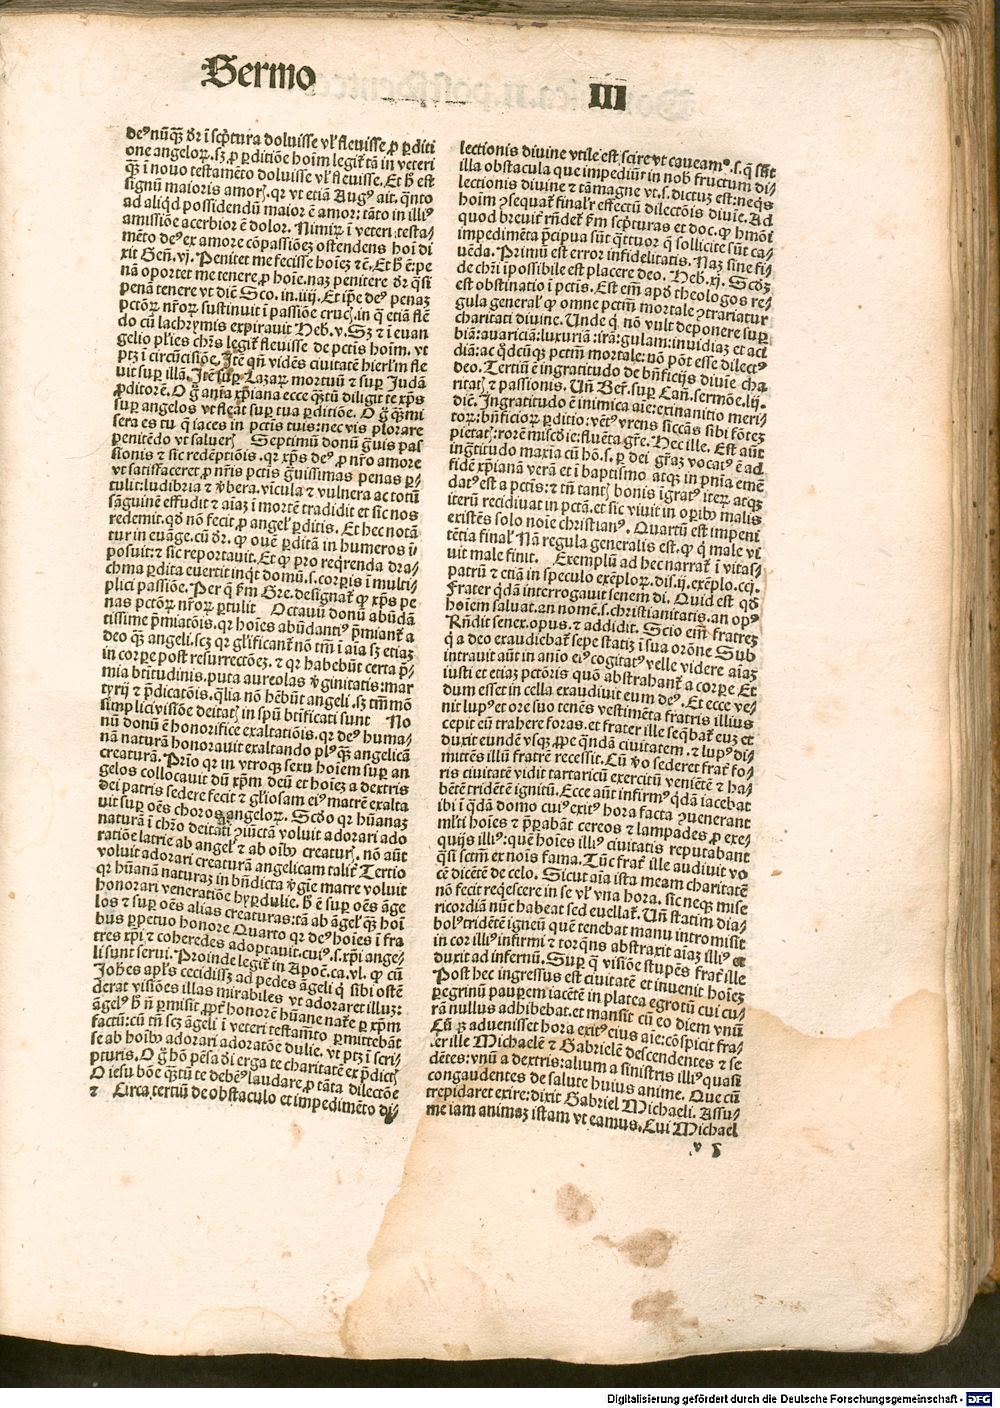 Sermo III
de⁹ nūq̄ꝫ dr̄ ī scp̄tura doluisse vl̓ fleuisse ꝓ ꝑditi
one angeloꝝ. sꝫ ꝓ ꝑditiōe hoīm legit̄ tā in veteri
q̄ꝫ ī nouo testamēto doluisse vl̓ fleuisse. Et h̄ est
signū maioris amorꝭ. qr vt etiā Aug⁹ ait. q̄nto
ad aliqd possidendū maior ē amor: tāto in illi⁹
amissiōe acerbior ē dolor. Nimiꝝ ī veteri testa-
mēto de⁹ ex amore cōpassiōeꝫ ostendens hoī di
xit Geñ. vj. Penitet me fecisse hoīeꝫ ⁊c̄. Et h̄ ē: pe
nā oportet me tenere ꝓ hoīe. naꝫ penitere dr̄ q̄si
penā tenere vt dic̄ Sco. in. iiij. Et ip̄e de⁹ penaꝫ
pctōꝝ nr̄oꝝ sustinuit ī passiōe crucꝭ. in q̄ etiā flē
do cū lachrymis expirauit Heb. v. Sꝫ ⁊ ī euan
gelio pl̓ies ch̄rs legit̄ fleuisse de pctīs hoīm. vt
ptꝫ ī circūcisiōe. Itē qn̄ vidēs ciuitatē hierl̓m fle
uit suꝑ illā. Itē suꝑ Lazaꝝ mortuū ⁊ suꝑ Judā
ꝓditorē. O ḡ aīa xp̄iana ecce q̄ꝫtū diligit te xp̄s
suꝑ angelos vt fleat suꝑ tua ꝑditiōe. O ḡ q̄ꝫ mi
sera es tu q̄ iaces in pctīs tuis: nec vis plorare
penitēdo vt salueꝝ Septimū donū ḡuis pas
sionis ⁊ sic redēptiōis. qr xp̄s de⁹ ꝓ nr̄o amore
vt satisfaceret ꝓ nr̄is pctīs ḡuissimas penas ꝑ-
tulit: ludibria ⁊ ꝟbera. vīcula ⁊ vulnera ac totū
sāguinē effudit ⁊ aīaꝫ ī mortē tradidit et sic nos
redemit. qd̄ nō fecit ꝓ angel̓ ꝑditis. Et hec notā
tur in euāge. cū dr̄. ꝙ ouē ꝑditā in humeros ī
posuit: ⁊ sic reportauit. Et ꝙ pro reqrenda dra-
chma ꝑdita euertit inq̄t domū. s. corpis ī multi-
plici passiōe. Per q̄ fm̄ Gre. designat̄ ꝙ xp̄s pe
nas pctōꝝ nr̄oꝝ ꝑtulit Octauū donū abūdā
tissime p̄miatōis. qr hoīes abūdanti⁹ p̄miant̄ a
deo q̄ꝫ angeli. scꝫ qr gl̓ificant̄ nō tm̄ ī aīa sꝫ etiaꝫ
in corpe post resurrectōeꝫ. ⁊ qr habebūt certa p̄-
mia btītudinis. puta aureolas ꝟginitatis: mar
tyrij ⁊ p̄dicatōis. q̄lia nō hēbūt angeli. sꝫ tm̄mō
simplici visiōe deitatꝭ in spū btīficati sunt No
nū donū ē honorifice exaltatiōis. qr de⁹ huma-
nā naturā honorauit exaltando pl⁹ q̄ꝫ angelicā
creaturā. Prīo qr in vtroqꝫ sexu hoīem suꝑ an
gelos collocauit dū xp̄m deū et hoīeꝫ a dextris
dei patris sedere fecit ⁊ gl̓iosam ei⁹ matrē exalta
uit suꝑ oēs choros angeloꝝ. Scd̄o qr hūanaꝫ
naturā ī chr̄o deitati ꝯiūctā voluit adorari ado
ratiōe latrie ab angel̓ ⁊ ab oībꝰ creaturꝭ. nō aūt
voluit adorari creaturā angelicam talit̄ Tertio
qr hūanā naturaꝫ in bn̄dicta ꝟgīe matre voluit
honorari veneratiōe hyꝑdulie. h̄ ē suꝑ oēs āge
los ⁊ suꝑ oēs alias creaturas: tā ab āgel̓ q̄ꝫ hoī
bus ꝑpetuo honore Quarto qr de⁹ hoīes ī fra
tres xp̄i ⁊ coheredes adoptauit. cui⁹. s. xp̄i ange-
li sunt serui. Proinde legit̄ in Apoc̄. ca. vl. ꝙ cū
Joh̄es apl̓s cecidissꝫ ad pedes āgeli q̄ sibi ostē
derat visiōes illas mirabiles vt adoraret illuꝫ:
āgel⁹ h̄ n̄ ꝑmisit ꝓpt̄ honorē hūane nat̄e ꝑ xp̄m
factū: cū tn̄ scꝫ āgeli ī veteri testam̄to ꝑmittebāt
se ab hoībꝰ adorari adoratōe dulie. vt ptꝫ ī scri-
pturis. O ḡ hō pēsa dī erga te charitatē ex p̄dictꝭ
O iesu bōe q̄ꝫtū te debem⁹ laudare ꝓ tāta dilectōe
⁊ Circa tertiū de obstaculo et impedimēto di-
lectionis diuine vtile est scire vt caueam⁹. s. q̄ sāt
illa obstacula que impediūt in nob̄ fructum di-
lectionis diuine ⁊ tāmagne vt. s. dictuꝫ est: neqꝫ
hoīm ꝯsequat̄ final̓r effectū dilectōis diuīe. Ad
quod breuit̄ rn̄det̄ fm̄ scp̄turas et doc. ꝙ hmōi
impedimēta p̄cipua sūt q̄ttuor q̄ sollicite sūt ca-
uēda. Primū est error infidelitatis. Naꝫ sine fi-
de chr̄i īpossibile est placere deo. Heb. xj. Scd̄ꝫ
est obstinatio ī pctīs. Est em̄ apd̄ theologos re-
gula general̓ ꝙ omne pctm̄ mortale ꝯtrariatur
charitati diuine. Unde q̄ nō vult deponere suꝑ
biā: auariciā: luxuriā: irā: gulam: inuidiaꝫ et aci
diā: ac qd̄cūqꝫ pctm̄ mortale: nō pōt esse dilect⁹
deo. Tertiū ē ingratitudo de bn̄ficijs diuīe cha
ritatꝭ ⁊ passionis. Uñ Ber. suꝑ Cañ. sermōe. lij.
dic̄. Ingratitudo ē inimica aīe: exinanitio meri-
toꝝ: bn̄ficioꝝ ꝑditio: vēt⁹ vrens siccās sibi fōteꝫ
pietatꝭ: rorē miscd̄ie: fluēta gr̄e. Hec ille. Est aūt
ingr̄titudo maxīa cū hō. s. ꝑ dei gr̄aꝫ vocat⁹ ē ad
fidē xp̄ianā verā et ī baptismo atqꝫ in pnīa emē
dat⁹ est a pctīs: ⁊ tn̄ tantꝭ bonis īgrat⁹ iteꝝ atqꝫ
iterū recidiuat in pctā. et sic viuit in oꝑibꝰ malis
existēs solo noīe christian⁹. Quartū est impeni
tētia final̓ Nā regula generalis est. ꝙ q̄ male vi
uit male finit. Exemplū ad hec narrat̄ ī vitas-
patrū ⁊ etiā in speculo exēploꝝ. dis. ij. exēplo. ccij.
Frater q̄dā interrogauit senem di. Quid est qd̄
hoīem saluat. an nomē. s. christianitatis. an op⁹
Rn̄dit senex. opus. ⁊ addidit. Scio em̄ fratreꝫ
q̄ a deo exaudiebat̄ sepe statiꝫ ī sua orōne Sub
intrauit aūt in aīo ei⁹ cogitat⁹ velle videre aīaꝫ
iusti et etiaꝫ pctōris quō abstrahant̄ a corpe Et
dum esset in cella exaudiuit eum de⁹. Et ecce ve-
nit lup⁹ et ore suo tenēs vestimēta fratris illius
cepit eū trahere foras. et frater ille seq̄bat̄ euꝫ et
duxit eundē vsqꝫ ꝓpe q̄ndā ciuitatem. ⁊ lup⁹ di-
mittēs illū fratrē recessit. Cū ꝟo sederet frat̄ fo-
ris ciuitatē vidit tartaricū exercitū veniētē ⁊ ha-
bētē tridētē ignitū. Ecce aūt infirm⁹ q̄dā iacebat
ibi ī q̄dā domo cui⁹ exit⁹ hora facta ꝯuenerant
ml̓ti hoīes ⁊ p̄ꝑabāt cereos ⁊ lampades ꝓ exe-
quijs illi⁹: quē hoīes illi⁹ ciuitatis reputabant
q̄si sctm̄ ex noīs fama. Tūc frat̄ ille audiuit vo
cē dicētē de celo. Sicut aīa ista meam charitatē
nō fecit reqescere in se vl̓ vna hora. sic neqꝫ mise
ricordiā nūc habeat sed euellat̄. Uñ statim dia-
bol⁹ tridētē igneū quē tenebat manu intromisit
in cor illi⁹ infirmi ⁊ torq̄ns abstraxit aīaꝫ illi⁹ et
duxit ad infernū. Suꝑ q̄ visiōe stupēs frat̄ ille
Post hec ingressus est ciuitatē et inuenit hoīeꝫ
ꝑegrinū pauꝑem iacētē in platea egrotū cui cu-
rā nullus adhibebat. et mansit cū eo diem vnū
Cū ꝫ aduenisset hora exit⁹ eius aīe: cōspicit fra-
ter ille Michaelē ⁊ Gabrielē descendentes ⁊ se
dētes: vnū a dextris: alium a sinistris illi⁹ quasi
congaudentes de salute huius anime. Que cū
trepidaret exire: dixit Gabriel Michaeli. Assu-
me iam animaꝫ istam vt eamus. Cui Michael
v 5
Digitalisierung gefördert durch die Deutsche Forschungsgemeinschaft - DFG